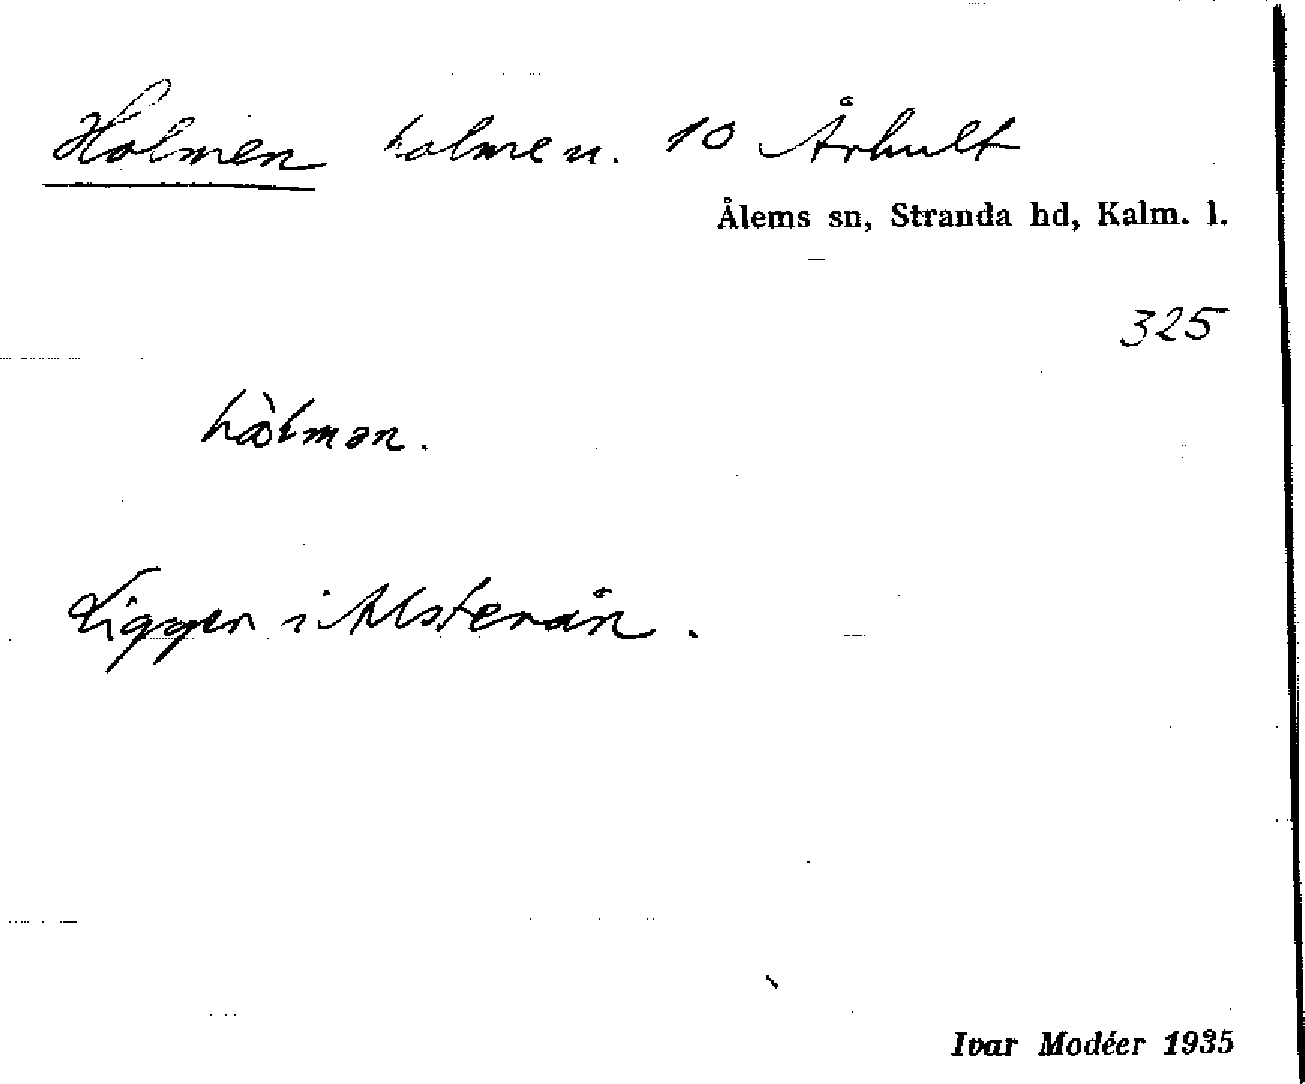 Holmen holme n. 10 Århult
Ålems sn, Stranda hd, Kalm. l.
325
hòlmən.
Ligger i Alsterån.
Ivar Modéer 1935